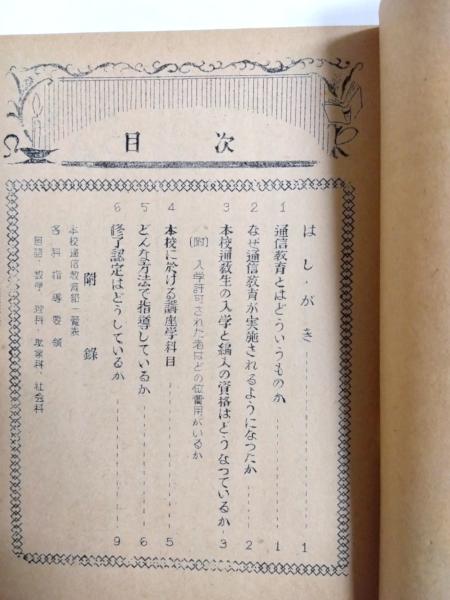 目次
はしがき 1
1 通信教育とはどういうものか 1
2 なぜ通信教育が実施されるようになつたか 2
3 本校通教生の入学と編入の資格はどうなつているか 3
(附) 入学許可された者はどの位費用がいるか
4 本校に於ける講座学科目 5
5 どんな方法で指導しているか 6
6 修了認定はどうしているか 9
附録
本校通信教育部一覧表
各科指導要領
国語・数学・理科・職業科・社会科